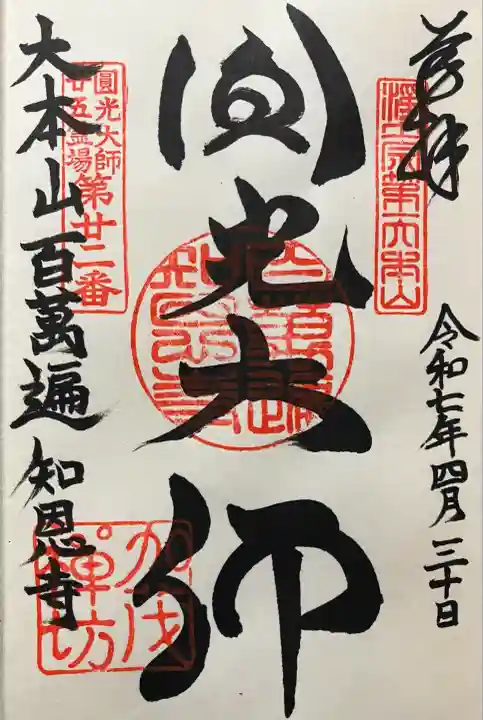 奉拝
浄土宗第六本山
令和七年四月三十日
圓光大師
圓光大師
廿五霊場第廿二番
大本山百萬遍知恩寺
加茂
禅坊